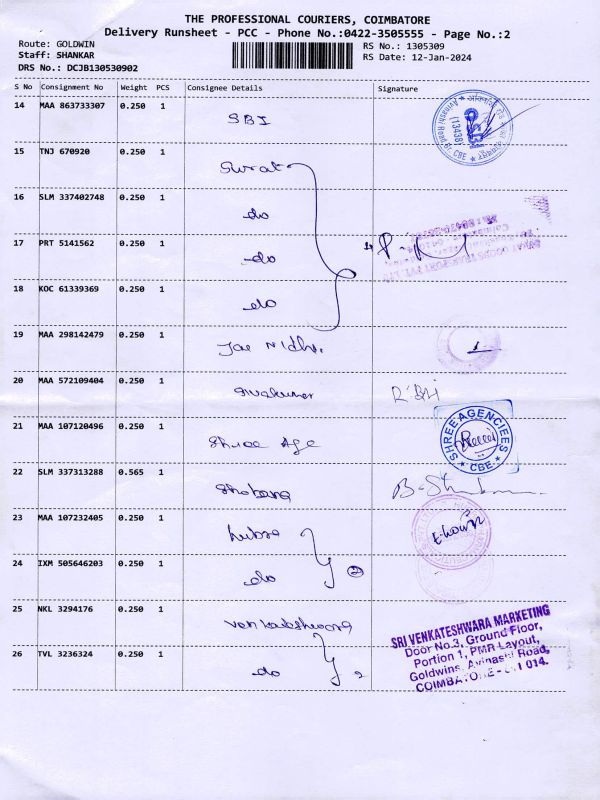 THE PROFESSIONAL COURIERS, COIMBATORE
Delivery Runsheet - PCC - Phone No.:0422-3505555 - Page No.:2
Route: GOLDWIN
Staff: SHANKAR
DRS No.: DCJB130530902
RS No.: 1305309
RS Date: 12-Jan-2024
S No Consignment No Weight PCS Consignee Details Signature
14 MAA 863733307 0.250 1 SBI
15 TNJ 670920 0.250 1 Surat
16 SLM 337402748 0.250 1 do
17 PRT 5141562 0.250 1 do
18 KOC 61339369 0.250 1 do
19 MAA 298142479 0.250 1
20 MAA 572109404 0.250 1
21 MAA 107120496 0.250 1 Shree Age
SHREE AGENCIEES
CBE
22 SLM 337313288 0.565 1
23 MAA 107232405 0.250 1
24 IXM 505646203 0.250 1 do
2
25 NKL 3294176 0.250 1
26 TVL 3236324 0.250 1 do
2
SRI VENKATESHWARA MARKETING
Door No.3, Ground Floor,
Portion 1, PMR Layout,
Goldwins, Avinashi Road,
COIMBATORE - 641 014.